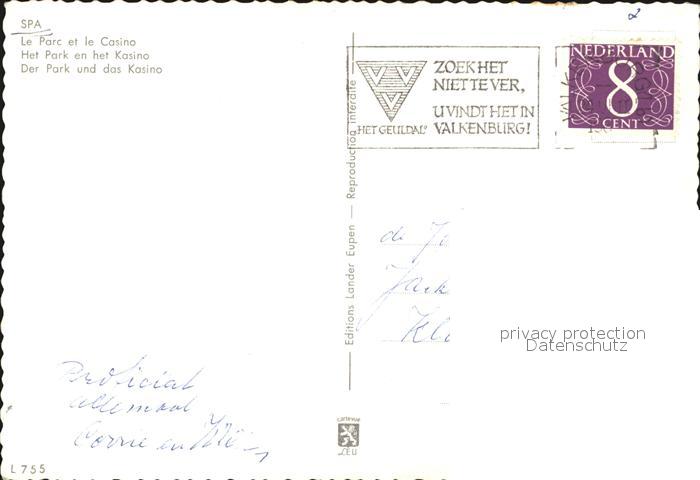 SPA
Le Parc et le Casino
Het Park en het Kasino
Der Park und das Kasino
ZOEK HET
NIET TE VER,
U VINDT HET IN
VALKENBURG!
"HET GEULDAL"
NEDERLAND
8
CENT
Editions Lander Eupen — Reproduction interdite
de
privacy protection
Datenschutz
Proficiat
allemaal
Corrie en
L 755